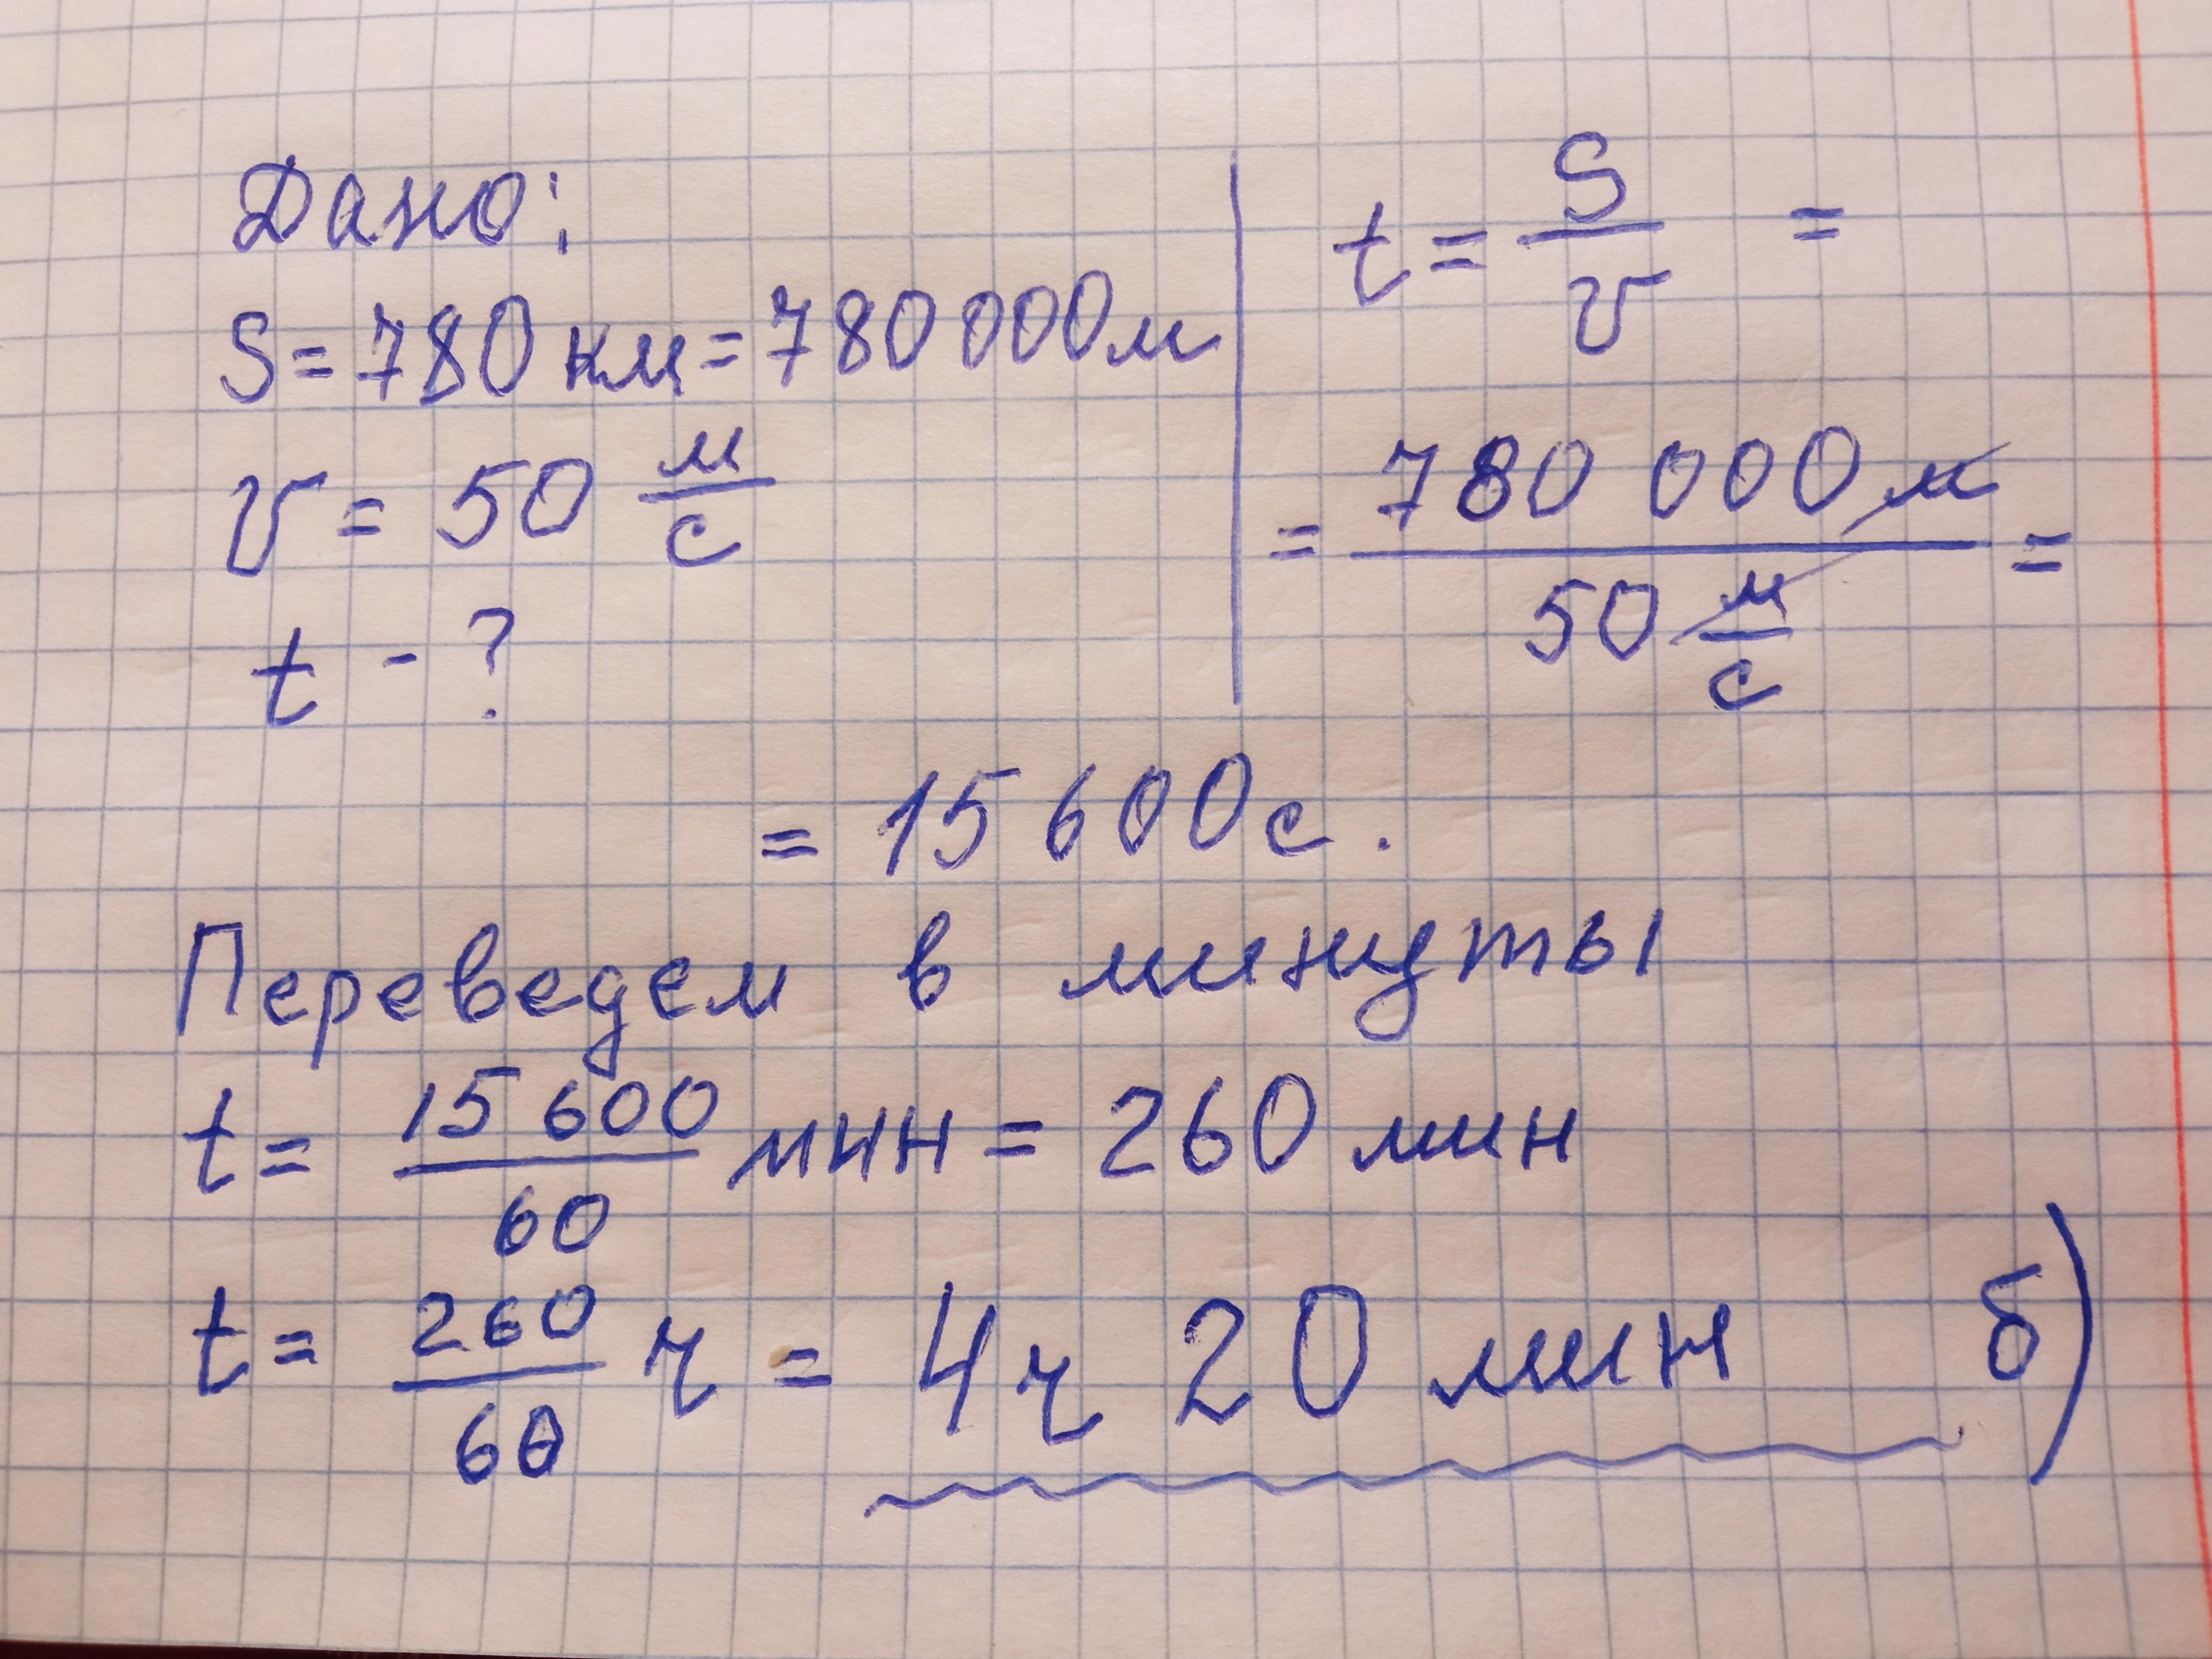 Дано:
S = 780 км = 780 000 м
v = 50 м/с
t - ?
t = S/v =
= 780 000 м / 50 м/с =
= 15 600 с.
Переведем в минуты
t = 15 600/60 мин = 260 мин
t = 260/60 ч = 4ч 20 мин б)